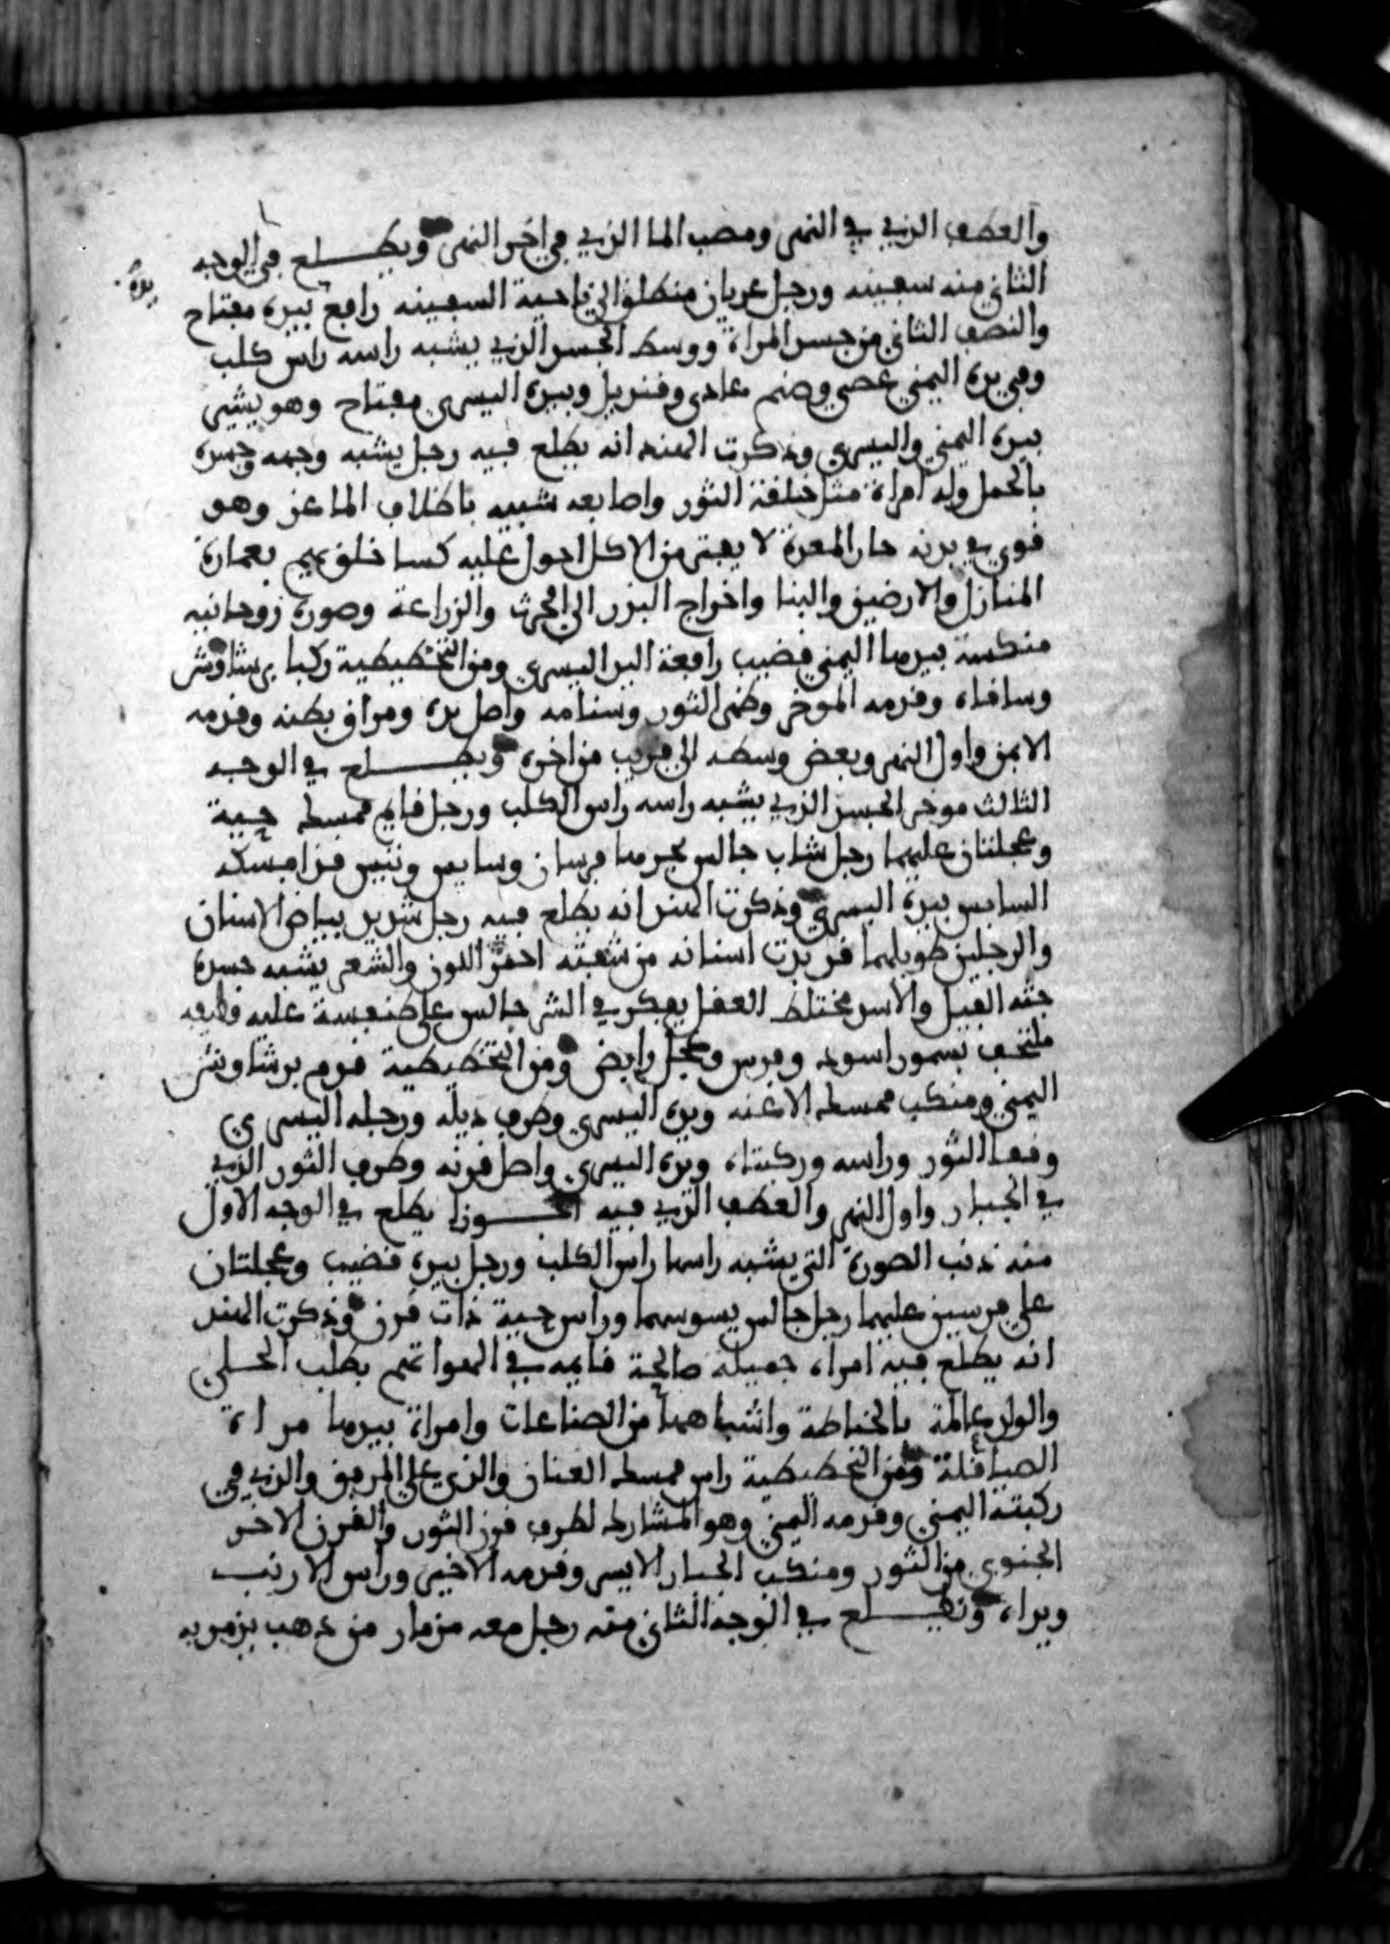 والعطف الذي في النهر ومصب الما الذي في اخر النهر ويطلع في الوجه
الثاني منه سفينه ورجل عريان منطلق الى ناحية السفينه رافع بيده مفتاح
يده
والنصف الثاني من جسر المراة ووسط الجسر الذي يشبه راسه راس كلب
وفي يده اليمنى عصى وصنم عادى وقنديل وبيده اليسرى مفتاح وهو يشير
بيده اليمنى واليسرى وذكرت الهند انه يطلع فيه رجل يشبه وجهه وجسده
بالحمل وله امراة مثل خلقة الثور واصابعه شبيه باظلاف الماعز وهو
قوي في بدنه حار المعدة لا يفتر من الاكل احول عليه كسا خلق يهم بعمارة
المنازل والارضين والبنا واخراج البذر الى الحرث والزراعة وصورة روحانيه
منكسة بيدها اليمنى قضيب رافعة اليد اليسرى ومن التخطيطية ركبتا برشاوش
وساقاه وقدمه الموخر وظهر الثور وسنامه واصل يده ومراق بطنه وقدمه
الايمن واول النهر وبعض وسطه الى قريب من اخره ويطلع في الوجه
الثالث موخر الجسد الذي يشبه راسه راس الكلب ورجل قايم ممسك حية
وعجلتان عليهما رجل شاب جالس يجرهما فرسان وسايس وتنيس قد امسكه
السايس بيده اليسرى وذكرت الهند انه يطلع فيه رجل شديد بياض الاسنان
والرجلين طويلهما قد بدت اسنانه من شفته احمر اللون والشعر يشبه جسده
جثه الفيل والاسد مختلط العقل يفكر في الشر جالس على طنفسة عليه قطيفه
ملتحف بسمور اسود وفرس وعجل رابض ومن التخطيطية قدم برشاوش
اليمنى ومنكب ممسك الاعنه ويده اليسرى وطرف ذيله ورجله اليسرى
وقفا الثور وراسه وركبتاه ويده اليسرى واصل قرنه وطرف الثور الذي
في الجبار واول النهر والعطف الذي فيه الجوزا يطلع في الوجه الاول
منه ذنب الصورة التي يشبه راسها راس الكلب ورجل بيده قضيب وعجلتان
على فرسين عليهما رجل جالس يسوسهما وراس حية ذات قرن وذكرت الهند
انه يطلع فيه امراه جميله صالحة قايمه في الهوا تهم بطلب الحلي
والولد عالمة بالخياطة واشباهها من الصناعات وامراة بيدها مراة
الصياقلة ومن التخطيطية راس ممسك العنان والذي على المرفق والذي في
ركبته اليمنى وقدمه اليمنى وهو المشارك لطرف قرن الثور والقرن الاخر
الجنوبي من الثور ومنكب الجبار الايسر وقدمه الاخير وراس الارنب
ويداه ويطلع في الوجه الثاني منه رجل معه مزمار من ذهب يزمر به